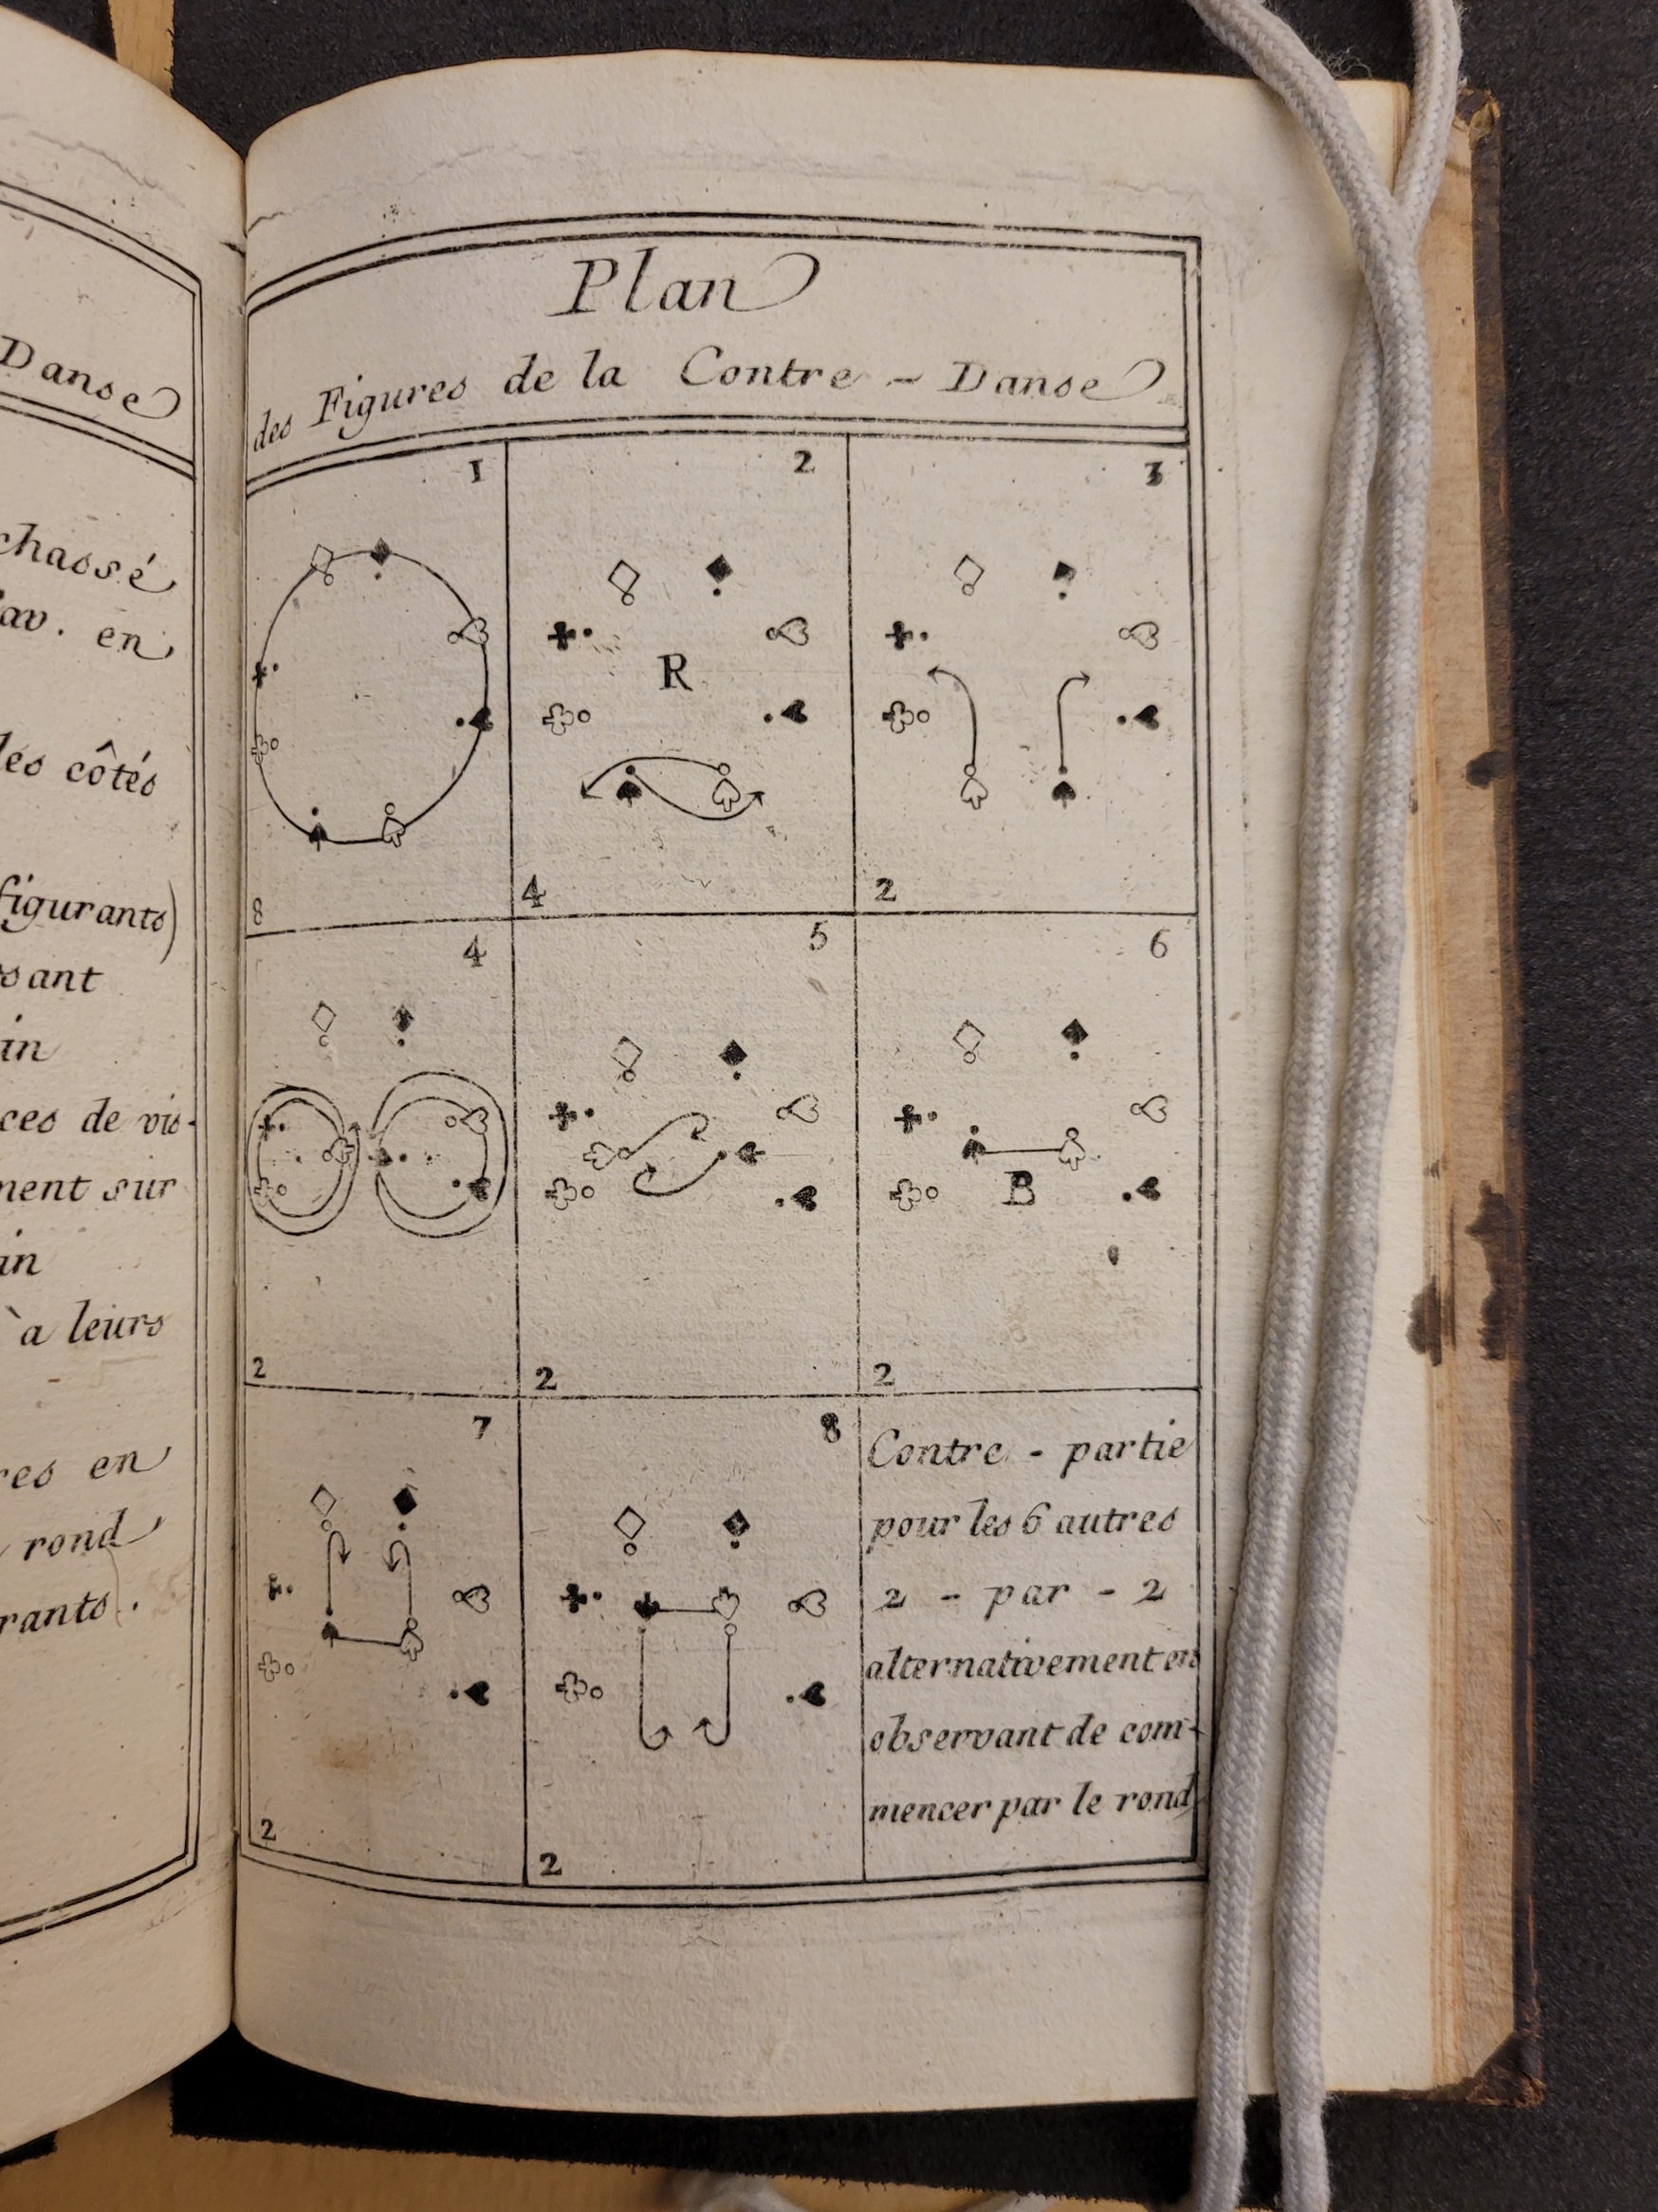 Danse
chassé
av. en
les côtés
figurants)
sant
in
ces de vis-
ment sur
in
à leurs
res en
rond
rants.
Plan
des Figures de la Contre - Danse
1
8
2
R
4
3
2
4
2
5
2
6
B
2
7
2
8
2
Contre - partie
pour les 6 autres
2 - par - 2
alternativement en
observant de com-
mencer par le rond